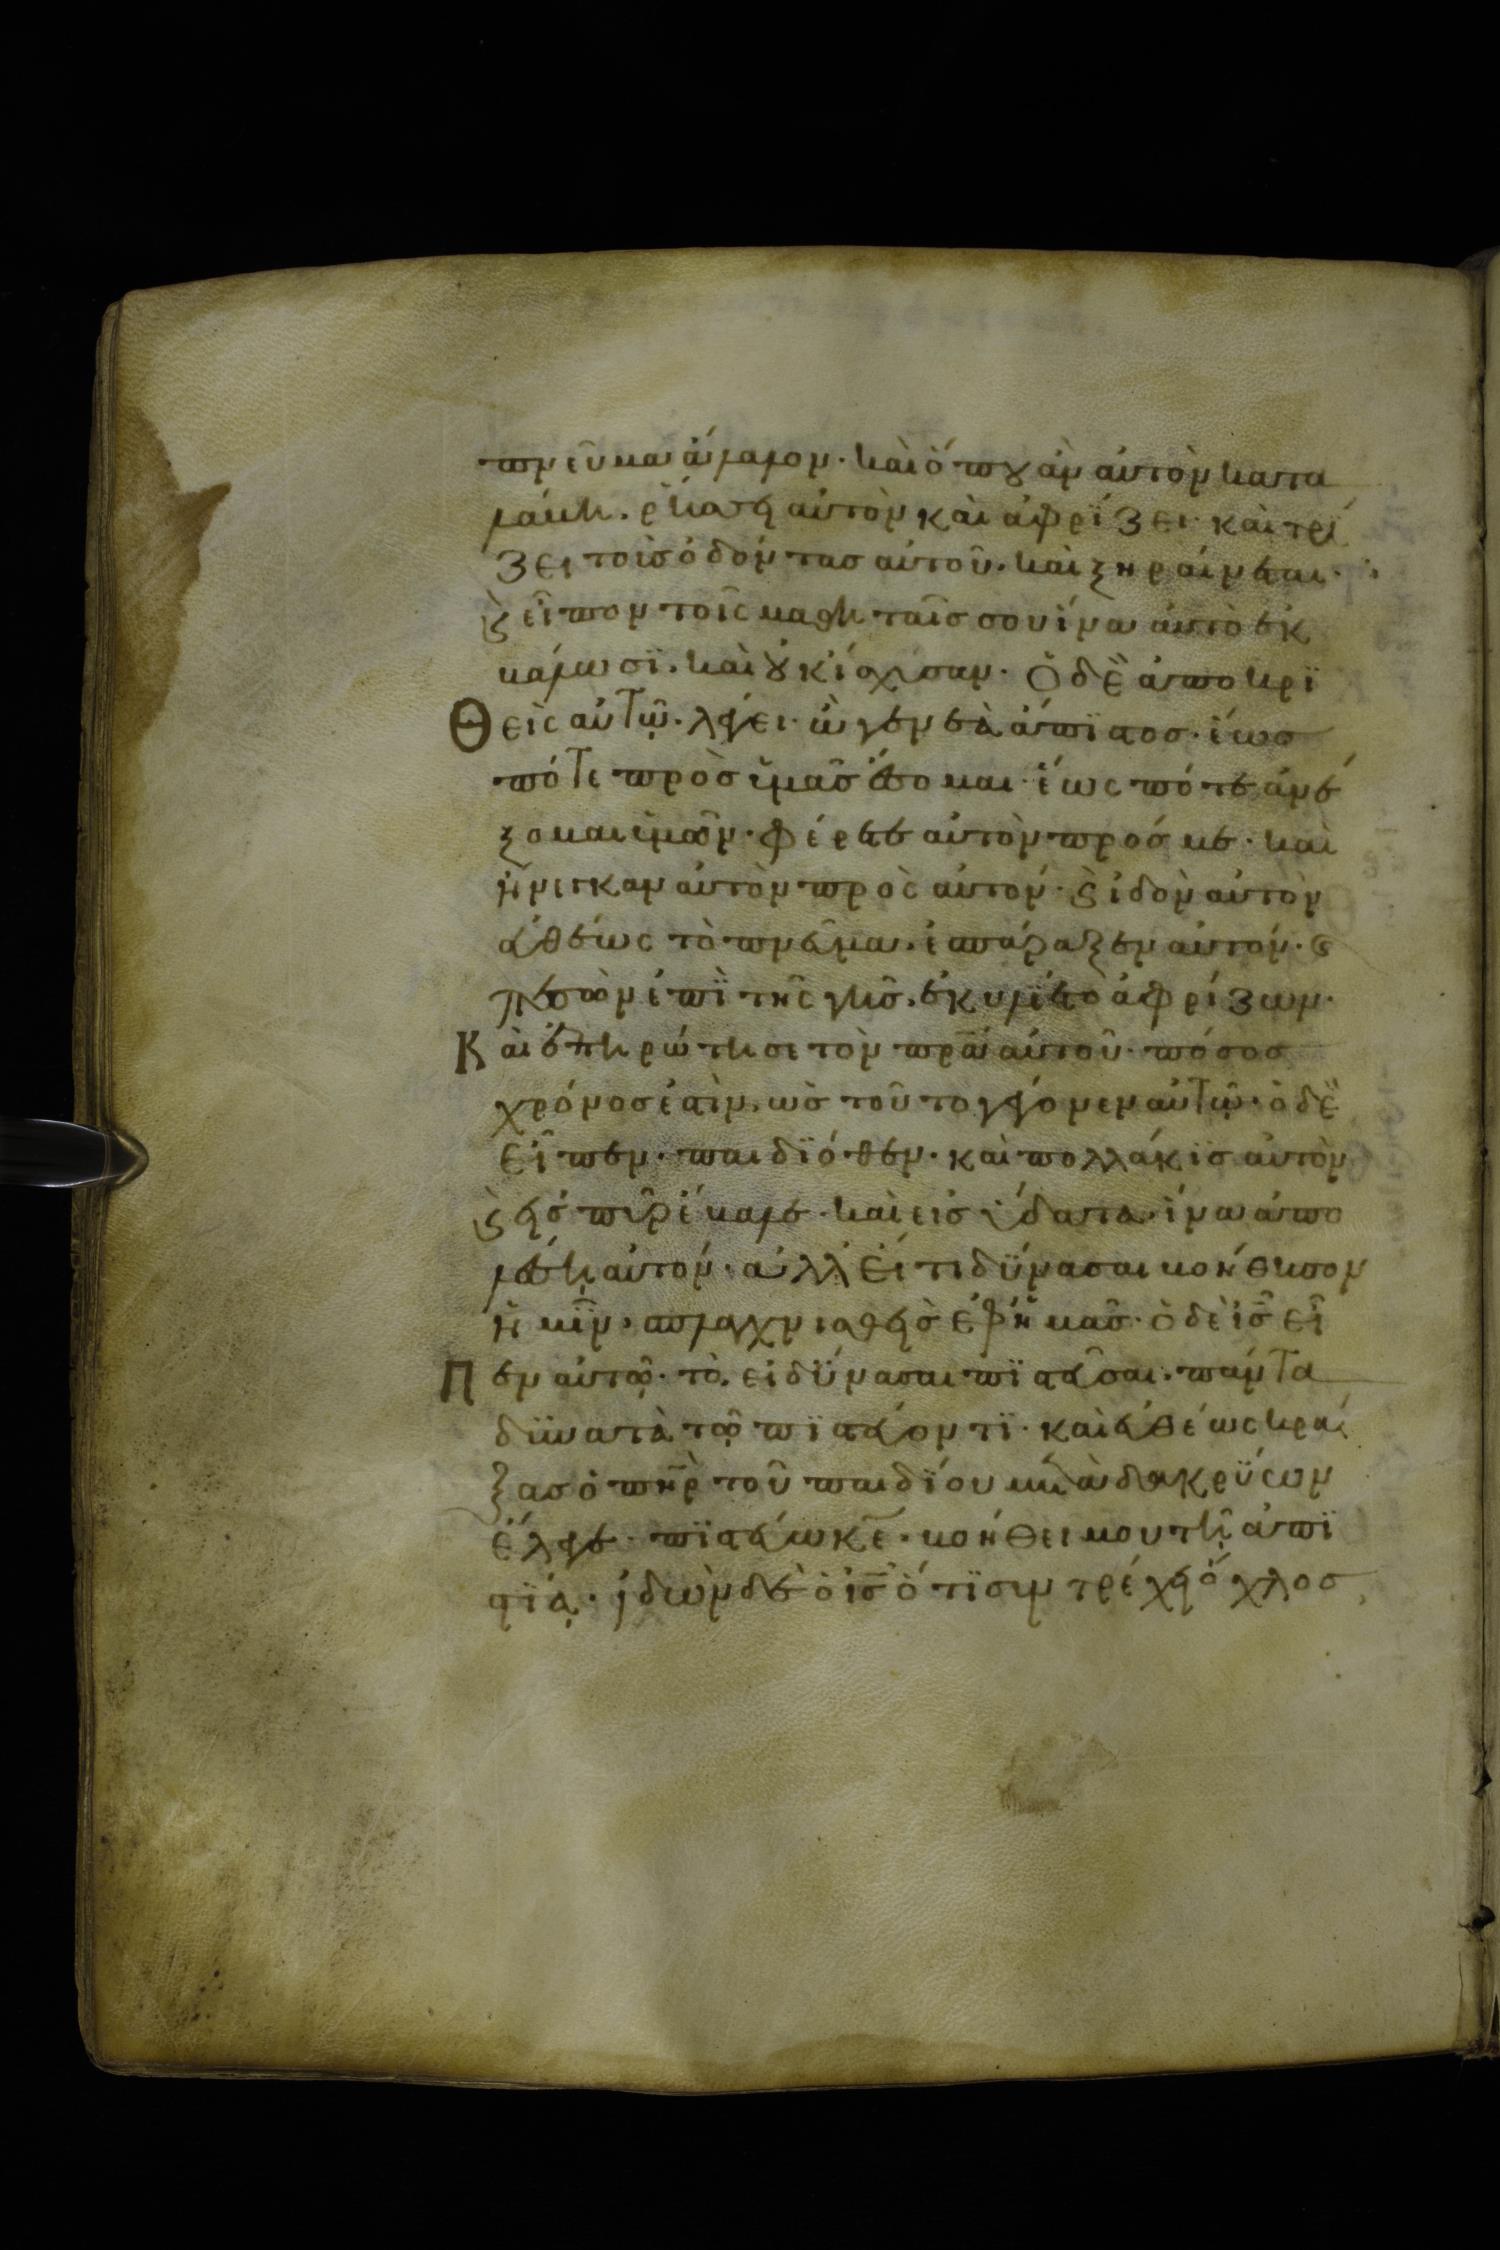 πνεῦμα ἄλαλον· καὶ ὅπου ἂν αὐτὸν κατα
λάβη. ῥήσσει αὐτὸν καὶ ἀφρίζει· καὶ τρί
ζει τοὺσ ὀδόντασ αὐτοῦ. καὶ ξηραίνεται·
ϗ εἶπον τοῖς μαθηταῖσ σου ἵνα αὐτὸ ἐκ
βάλωσϊ. καὶ οὐκ ἴσχυσαν. Ὁ δὲ ἀποκρϊ
θεὶς αὐτῶ. λέγει· ὦ γενεὰ ἄπϊστοσ· ἕωσ
πότε πρὸσ ὑμᾶσ ἔσομαι· ἕως πότε ἀνέ
ξομαι ὑμῶν· φέρετε αὐτὸν πρόσ με· καὶ
ἤνεγκαν αὐτὸν πρὸς αὐτόν· ϗ ἰδὸν αὐτὸν
εὐθέως τὸ πνεῦμα. ἐσπάραξεν αὐτόν· ϗ
πεσὼν ἐπῒ τῆς γῆσ. ἐκυλΐετο ἀφρίζων·
Καὶ ἐπηρώτησε τὸν πρ̅α αὐτοῦ· πόσοσ
χρόνοσ ἐστὶν. ὡσ τοῦτο γέγονεν αὐτῶ· ὁ δὲ
εἶπεν· παιδϊόθεν· καὶ πολλάκϊσ αὐτὸν
ϗ εἰσ πῦρ ἔβαλε· καὶ εἰσ ὕδατα· ἵνα ἀπο
λέση αὐτόν· ἀλλ' εἴ τι δΰνασαι βοήθησον
ἡμῖν. σπλαγχνισθεὶσ ἐφ' ἡμᾶσ· ὁ δὲ ι̅σ̅ εἶ
πεν αὐτῶ· τὸ. εἰ δΰνασαι πϊστεῦσαι. πάντα
δϋνατὰ τῶ πϊστεύοντϊ· καὶ εὐθέως κρά
ξασ ὁ πη̅ρ τοῦ παιδΐου μετὰ δακρΰων
ἔλεγε· πϊστεύω κ̅ε̅· βοήθει μου τῆ ἀπϊ
στΐα· ἰδὼν δὲ ὁ ι̅σ̅ ὅτϊ συντρέχει ὄχλοσ